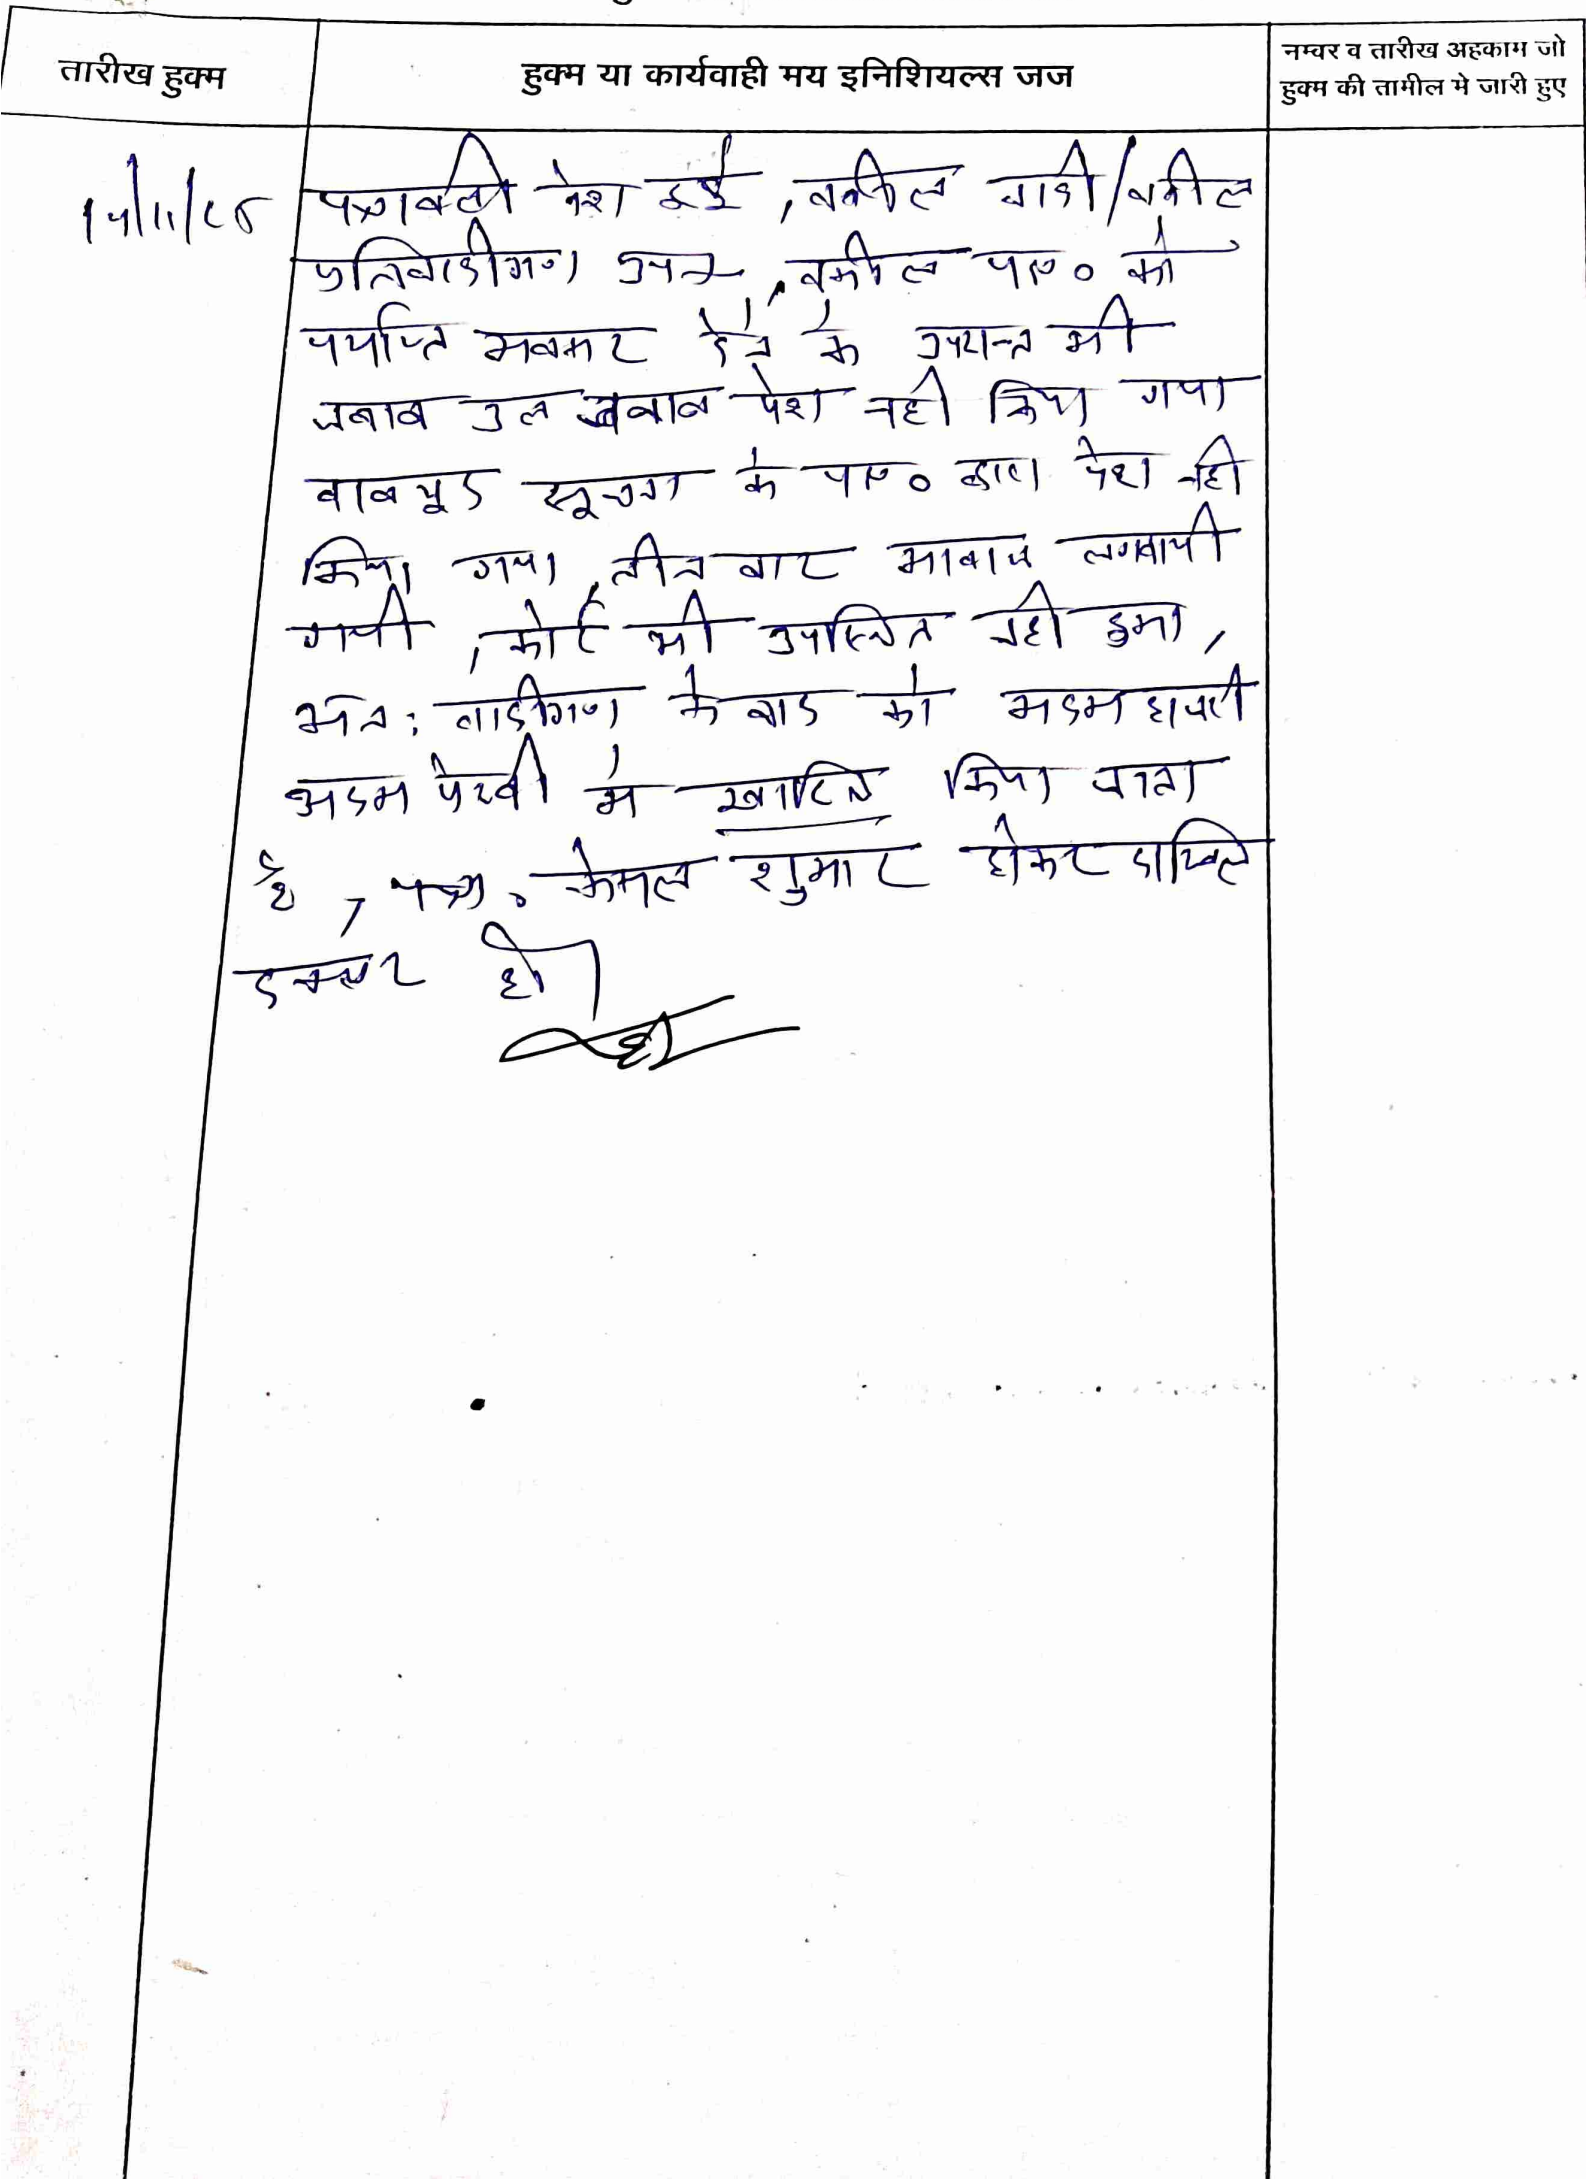 तारीख हुक्म
हुक्म या कार्यवाही मय इनिशियल्स जज
नम्वर व तारीख अहकाम जो
हुक्म की तामील मे जारी हुए
पत्रावली पेश हुई, वकील वादी/वकील
प्रतिवादीगण उप०, वकील को
पर्याप्त अवसर देने के उपरान्त भी
जवाब उल जवाब पेश नही किया गया
बावजूद सूचना के द्वारा पेश नही
किया गया, तीन बार आवाज लगवायी
गयी, कोई भी उपस्थित नही हुआ,
अतः वादीगण के वाद को अदम हाजरी
अदम पैरवी मे खारिज किया जाता
है, पत्रा. फैसल शुमार होकर दाखिल
दफ्तर हो।